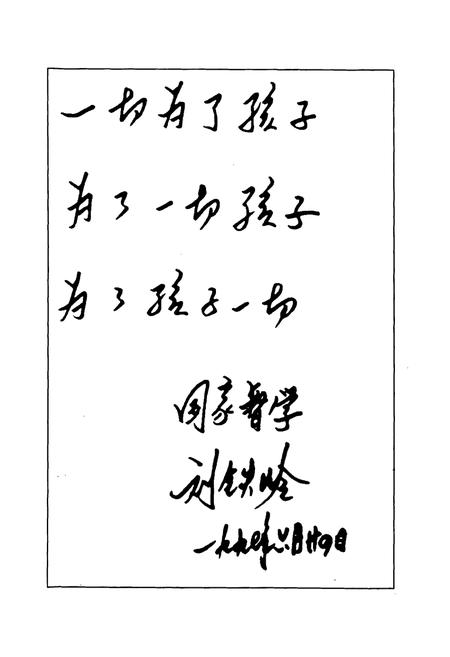 一切为了孩子
为了一切孩子
为了孩子一切
国家督学
刘铁岭
一九九年六月廿日